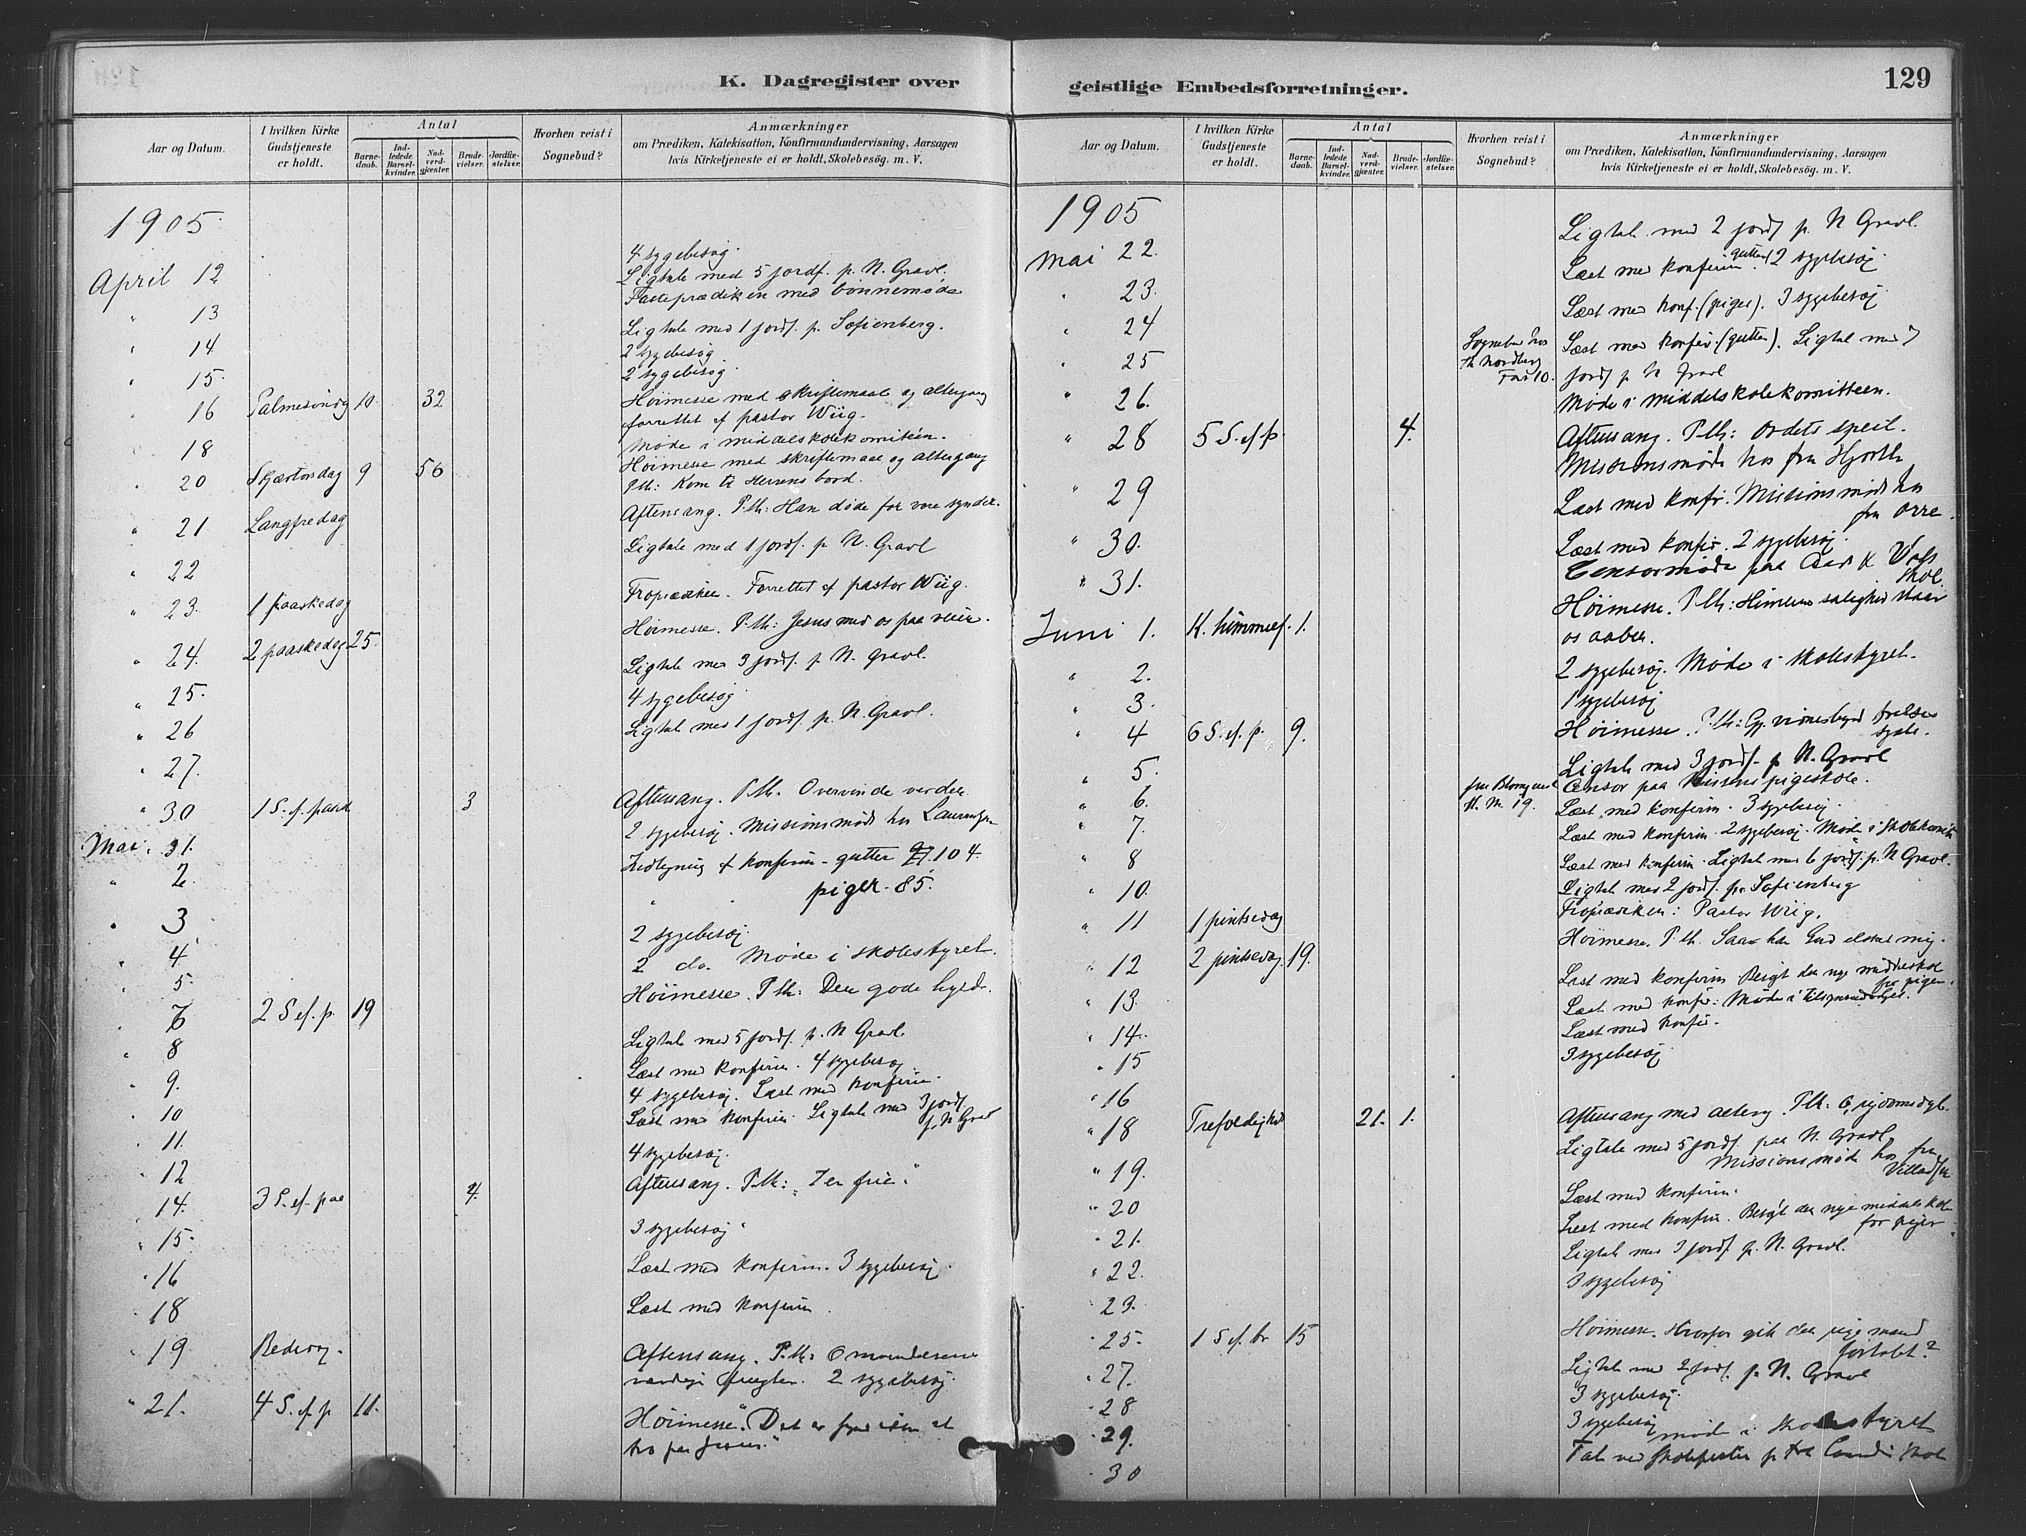 K. Dagregister over
Aar og Datum.
I hvilken Kirke Gudstjeneste er holdt.
Antal
Barne-daab.
Ind-ledede Barsel-kvinder.
Nad-verd-gjæster.
Brude-vielser.
Jordfæ-stelser.
Hvorhen reist i Sognebud?
Anmærkninger
om Prædiken, Katekisation, Konfirmandundervisning, Aarsagen
hvis Kirketjeneste ei er holdt, Skolebesög. m. V.
1905
4 sygebesøg.
April 12 Ligtale med 5 jordf. p. N. Gravl.
Fasteprædiken med bønnemøde
" 13 Ligtale med 1 jordf. p. Sofienberg.
" 14 2 sygebesøg
" 15 2 sygebesøg.
" 16 Palmesøndg 10 32 Høimesse med skriftemaal og altergang
forrettet af pastor Wiig.
18 Møde i middelskolekomiteen.
" 20 Skjærtorsdag 9 56 Høimesse med skriftemaal og altergang
Pth: Kom til Herrens bord.
" 21 Langfredag Aftensang. Pth: Han døde for vore synder.
" 22 Ligtale med 1 jordf. p N. Gravl
" 23. 1 paaskedag Froprædiken. Forrettet af pastor Wiig.
" 24. 2 paaskedag 25. Høimesse. Pth: Jesus med os paa veien.
" 25. Ligtale med 3 jordf. p N. Gravl.
" 26 4 sygebesøg
" 27. Ligtale med 1 jordf. p. N. Gravl.
" 30 1 S. ef. paask 3 Aftensang. Pth. Overvinde verden
Mai. 1. 2 sygebesøg. Missionsmøde hos
" 2. konfirm - gutter 104.
" piger. 85.
" 3 2 sygebesøg.
" 4 2 do. Møde i skolestyret.
" 5.
" 7 2 S ef. p. 19 Høimesse. Pth: Den gode hyrde.
" 8 Ligtale med 5 jordf. p. N Gravl
" 9. Læst med konfirm. 4 sygebesøg
" 10 4 sygebesøg. Læst med konfirm.
" 11. Læst med konfirm. Ligtale med 3 jordf.
p. N Gravl
" 12 4 sygebesøg.
" 14. 3 S. ef. paa 4. Aftensang. Pth: "I en frie".
" 15. 3 sygebesøg
" 16 Læst med konfirm. 3 sygebesøg.
" 18 Læst med konfirm.
" 19 Bededag. Aftensang. Pth: Omvendelsens
værdige frugter. 2 sygebesøg.
" 21. 4 S. ef. p 11. Høimesse". Det er at
tro paa Jesus."
geistlige Embedsforretninger.
129
Aar og Datum.
I hvilken Kirke Gudstjeneste er holdt.
Antal
Barne-daab.
Ind-ledede Barsel-kvinder.
Nad-verd-gjæster.
Brude-vielser.
Jordfæ-stelser.
Hvorhen reist i Sognebud?
Anmærkninger
om Prædiken, Katekisation, Konfirmandundervisning, Aarsagen
hvis Kirketjeneste ei er holdt, Skolebesög. m. V.
1905
Mai 22. Ligtale med 2 jordf p. N Gravl.
" 23. Læst med konfirm gutter. 2 sygebesøg.
" 24 Læst med konf. (piger). 3 sygebesøg
" 25 Sognebud hos Nordberg 10. Læst med konfir. (gutter). Ligtale med 7
jordf p N Gravl
" 26. Møde i middelskolekomitteen.
" 28 5 S. ef p. 4. Aftensang. Pth: Ordets speil.
Missionsmøde hos fru Hjorth
" 29 Læst med konfir. Missionsmøde hos
fru Orre.
" 30. Læst med konfir. 2 sygebesøg.
" 31. Censormøde paa Aars & Voss
skole.
Juni 1. K. himmelf. 1. Høimesse. Pth: Himlens salighed staar
os aaben.
" 2. 2 sygebesøg. Møde i skolestyret.
" 3. 1 sygebesøg
" 4 6 S. ef. p. 9. Høimesse. Pth:
" 5. Ligtale med 3 jordf. p N. Gravl
" 6. 19. Censor paa pigeskole.
Læst med konfirm. 3 sygebesøg.
" 7. Læst med konfirm. 2 sygebesøg. Møde i
" 8 Læst med konfirm. Ligtale med 6 jordf. p. N Gravl.
" 10. Ligtale med 2 jordf. p. Sofienberg
" 11 1 pintsedag Froprædiken: Pastor Wiig.
" 12 2 pintsedag. 19. Høimesse. Pth. Saa har Gud elsket mig.
" 13. Læst med konfirm Besigt den nye middelskole
for piger.
" 14. Læst med konfir: Møde i tilsynsudvalget.
" 15 Læst med konfir.
" 16 3 sygebesøg
" 18 Trefoldighed 21. 1. Aftensang med alterg. Pth:
" 19. Ligtale med 5 jordf. paa N. Gravl,
Missionsmøde hos fru
" 20 Læst med konfirm.
" 21. Læst med konfir. Besigt den nye middelskole
for piger.
" 22. Ligtale med 3 jordf. p. N. Gravl.
" 23. 3 sygebesøg
" 25. 1 S. ef. tr 15 Høimesse. Hvorfor gik den rige mand
fortabt?
" 27. Ligtale med 2 jordf. p. N. Gravl
" 28 3 sygebesøg.
" 29. 3 sygebesøg møde i skolestyret
" 30 Tale ved skolefesten p skole